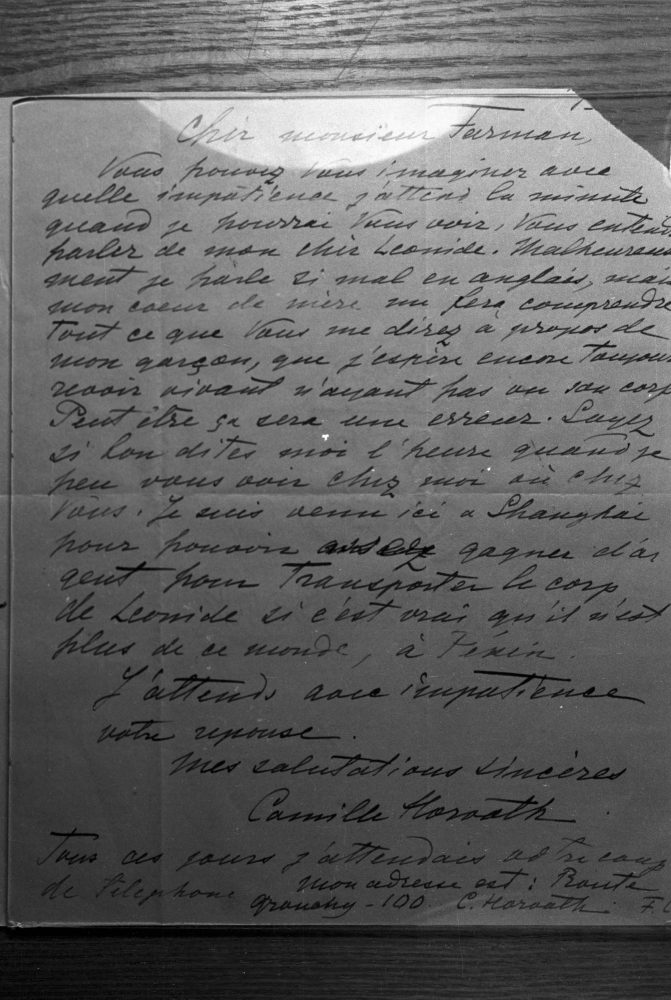 Chir monsieur Farman,
Vous pouvez Vous imaginer avec
quelle impatience j'attend la minute
quand je pourrai Vous voir, Vous entendr
parler de mon chir Leonide. Malheureus
ment je parle si mal en anglais, mais
mon coeur de mère me fera comprendre
tout ce que Vous me direz à propos de
mon garçon, que j'espère encore toujour
revoir vivant n'ayant pas vu son corp
Peut être ça sera une erreur. Soyez
si bon dites moi l'heure quand je
peu vous voir chez moi où chez
Vous. Je suis venu ici a Shanghai
pour pouvoir gagner d'ar
gent pour Transporter le corp
de Leonide si c'est vrai qu'il n'est
plus de ce monde, à Pékin.
J'attends avec impatience
votre reponse.
Mes salutations sincères
Camille Horvath
Tous ces jours j'attendais votre coup
de téléphone mon adresse est: Route
Grouchy - 100 C. Horvath. F.